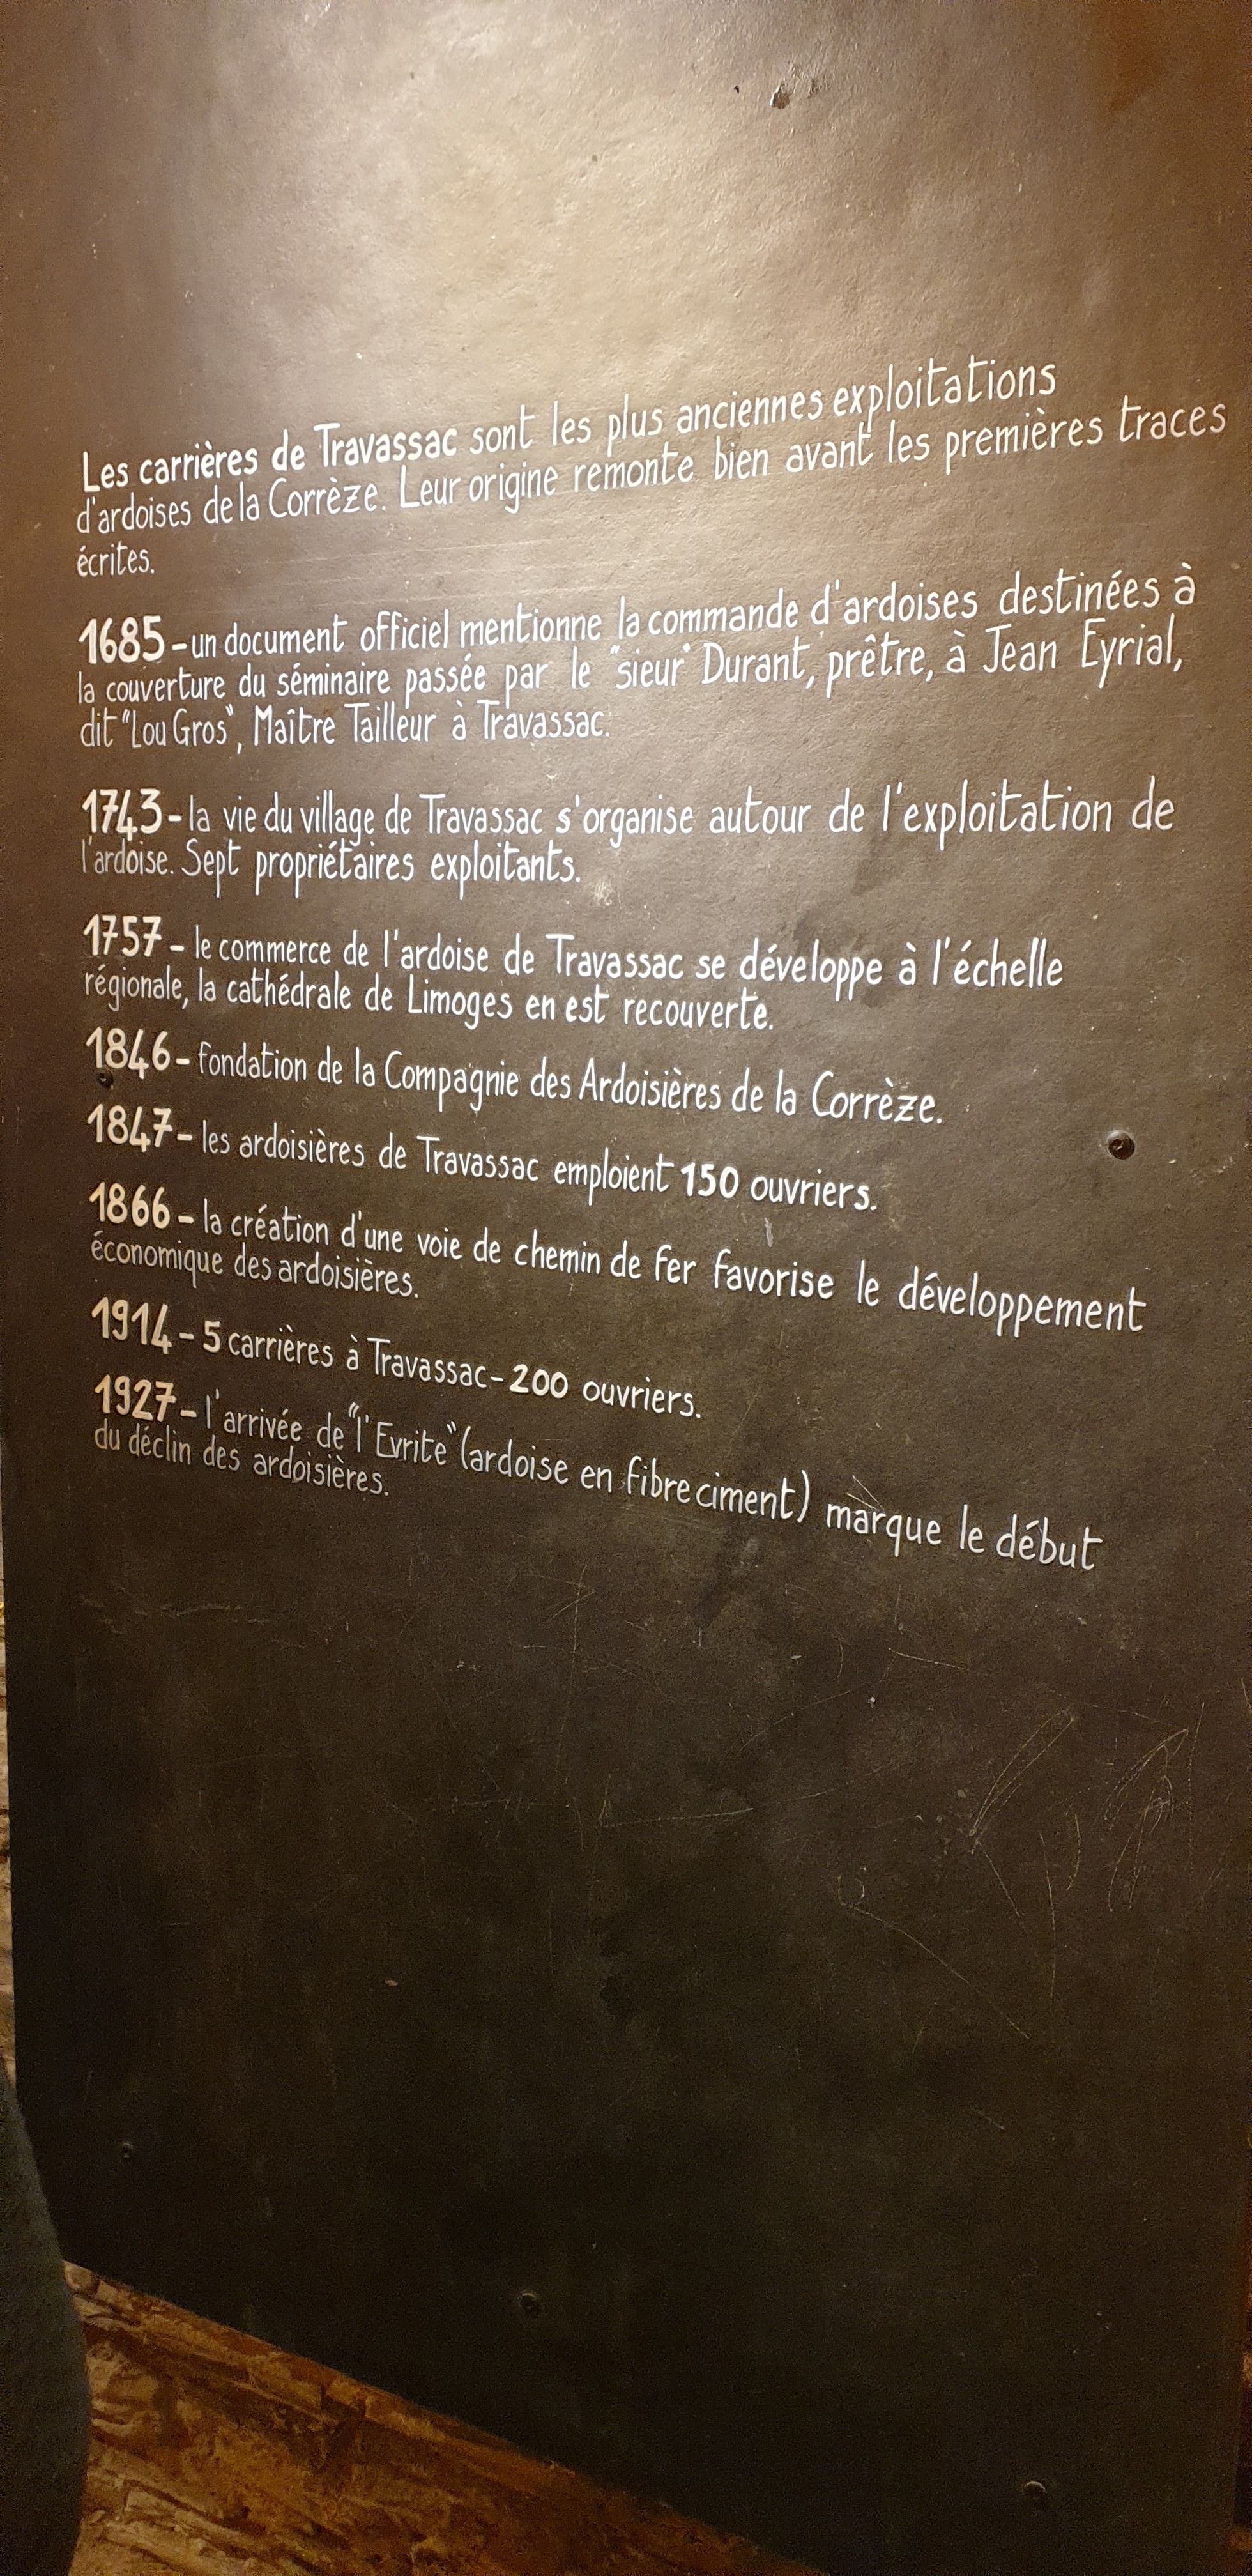 Les carrières de Travassac sont les plus anciennes exploitations
d'ardoises de la Corrèze. Leur origine remonte bien avant les premières traces
écrites.
1685 - un document officiel mentionne la commande d'ardoises destinées à
la couverture du séminaire passée par le "sieur" Durant, prêtre, à Jean Eyrial,
dit "Lou Gros", Maître Tailleur à Travassac.
1743 - la vie du village de Travassac s'organise autour de l'exploitation de
l'ardoise. Sept propriétaires exploitants.
1757 - le commerce de l'ardoise de Travassac se développe à l'échelle
régionale, la cathédrale de Limoges en est recouverte.
1846 - fondation de la Compagnie des Ardoisières de la Corrèze.
1847 - les ardoisières de Travassac emploient 150 ouvriers.
1866 - la création d'une voie de chemin de fer favorise le développement
économique des ardoisières.
1914 - 5 carrières à Travassac - 200 ouvriers.
1927 - l'arrivée de "l'Evrite" (ardoise en fibre ciment) marque le début
du déclin des ardoisières.